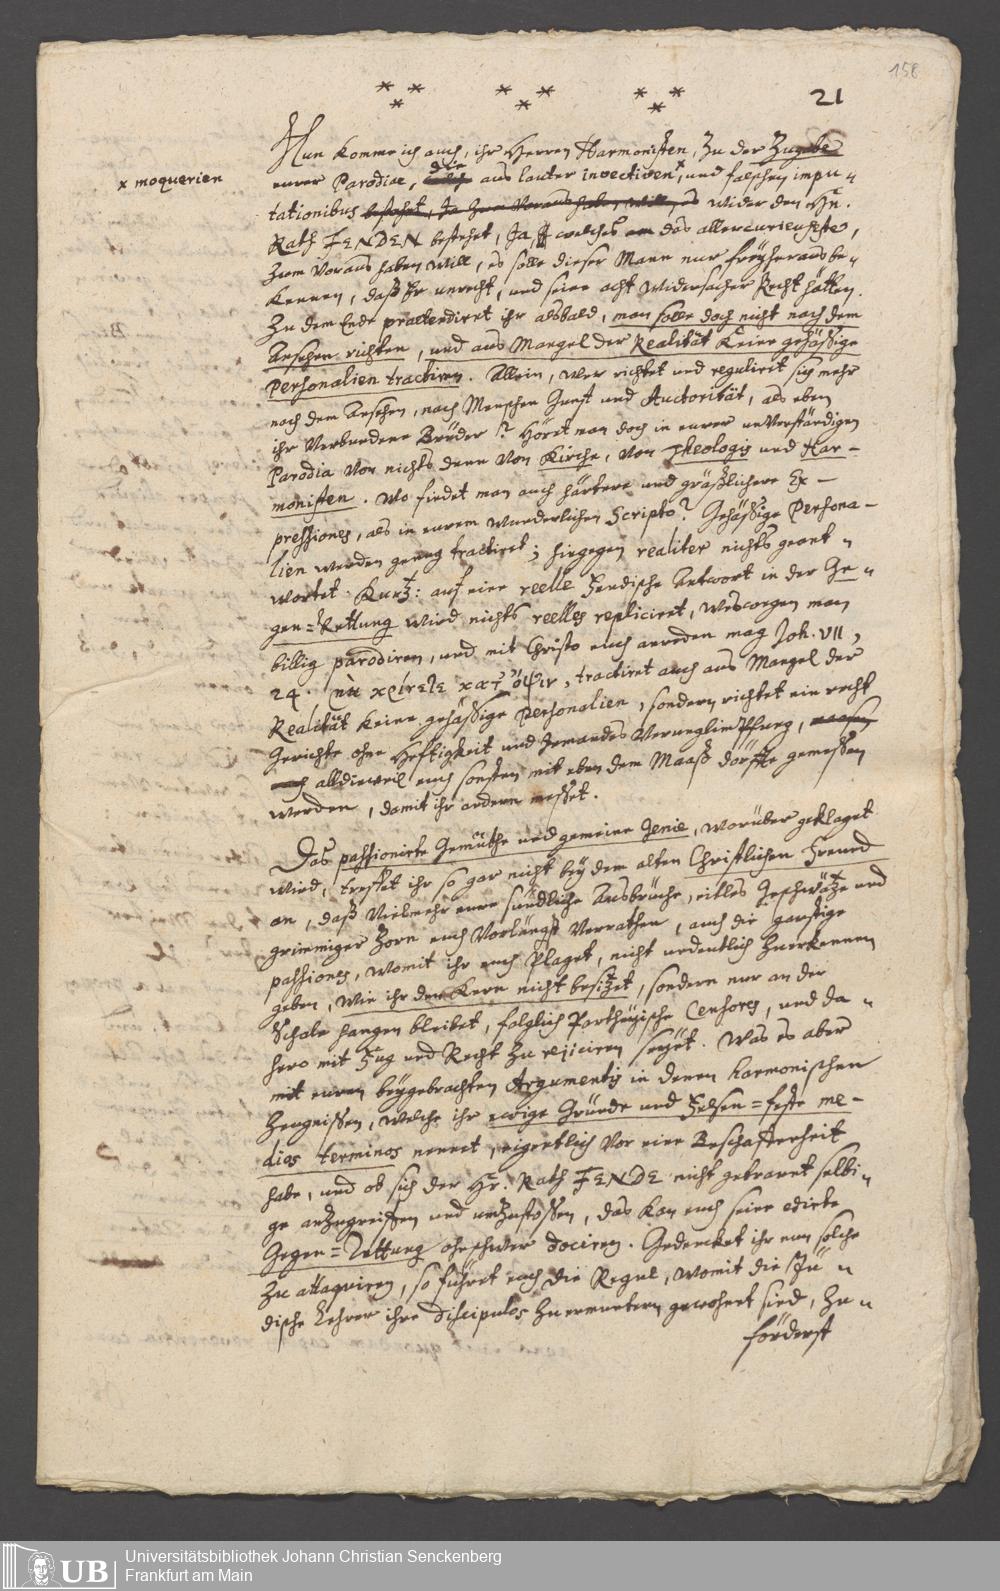 158
21
Nun komme ich auch, ihr Herren Harmonisten, zu der Zugabe
x moquerien
eurer Parodiae, die aus lauter invectiven x, und falschen impu-
tationibus bestehet, ja zum Voraus haben will, es wider den Hn.
Rath FENDEN bestehet, Ja, welches das allercurieuseste,
zum Voraus haben will, es solle dieser Mann nur freyheraus be-
kennen, daß Er unrecht, und seine acht Widersacher Recht hätten.
Zu dem Ende praetendiret ihr alsbald, man solle doch nicht nach dem
Ansehen richten, und aus Mangel der Realität keine gehäßige
Personalien tractiren. Allein, wer richtet und regulirt sich mehr
nach dem Ansehen, nach Menschen Gunst und Auctorität, als eben
ihr Verbundene Brüder? Höret man doch in eurer unverständigen
Parodia von nichts denn von Kirche, von Theologis und Har-
monisten. Wo findet man auch härtere und gräßlichere Ex-
pressiones, als in eurem wunderlichen Scripto? Gehäßige Persona-
lien werden genug tractiret; hingegen realiter nichts geant-
wortet. Kurtz: auf eine reelle Fendische Antwort in der Ge-
gen-Rettung wird nichts reelles repliciret, weswegen man
billig parodiren, und mit Christo euch anreden mag Joh. VII,
24. Μὴ κρίνετε κατ' ὄψιν, tractiret auch aus Mangel der
Realität keine gehäßige Personalien, sondern richtet ein recht
Gerichte ohne Heftigkeit und Jemandes Verunglimpffung,
alldieweil euch sonsten mit eben dem Maaß dörffte gemeßen
werden, damit ihr andern messet.
Das passionirte Gemüthe und gemeine Genie, worüber geklaget
wird, treffet ihr so gar nicht bey dem alten Christlichen Freund
an, daß vielmehr eure sündliche Ausbrüche, eitles Geschwätze und
grimmiger Zorn euch vorlängst verrathen, auch die garstige
passiones, womit ihr euch plaget, nicht undeutlich zuerkennen
geben, wie ihr den Kern nicht besitzet, sondern nur an der
Schale hangen bleibet, folglich Partheyische Censores, und da-
hero mit Fug und Recht zu rejiciren seyet. Was es aber
mit euren beygebrachten Argumentis in denen harmonischen
Zeugnissen, welche ihr ewige Gründe und Felsen-feste me-
dios terminos nennet, eigentlich vor eine Beschaffenheit
habe, und ob sich der Hr. Rath FENDE nicht getrauet selbi-
ge anzugreiffen und umzustossen, das kan euch seine edirte
Gegen-Rettung ohnschwer dociren. Gedencket ihr nun solche
zu attaquiren, so führet euch die Regul, womit die Jü-
dische Lehrer ihre Discipulos zuermuntern gewohnet sind, zu-
förderst
Universitätsbibliothek Johann Christian Senckenberg
Frankfurt am Main
UB